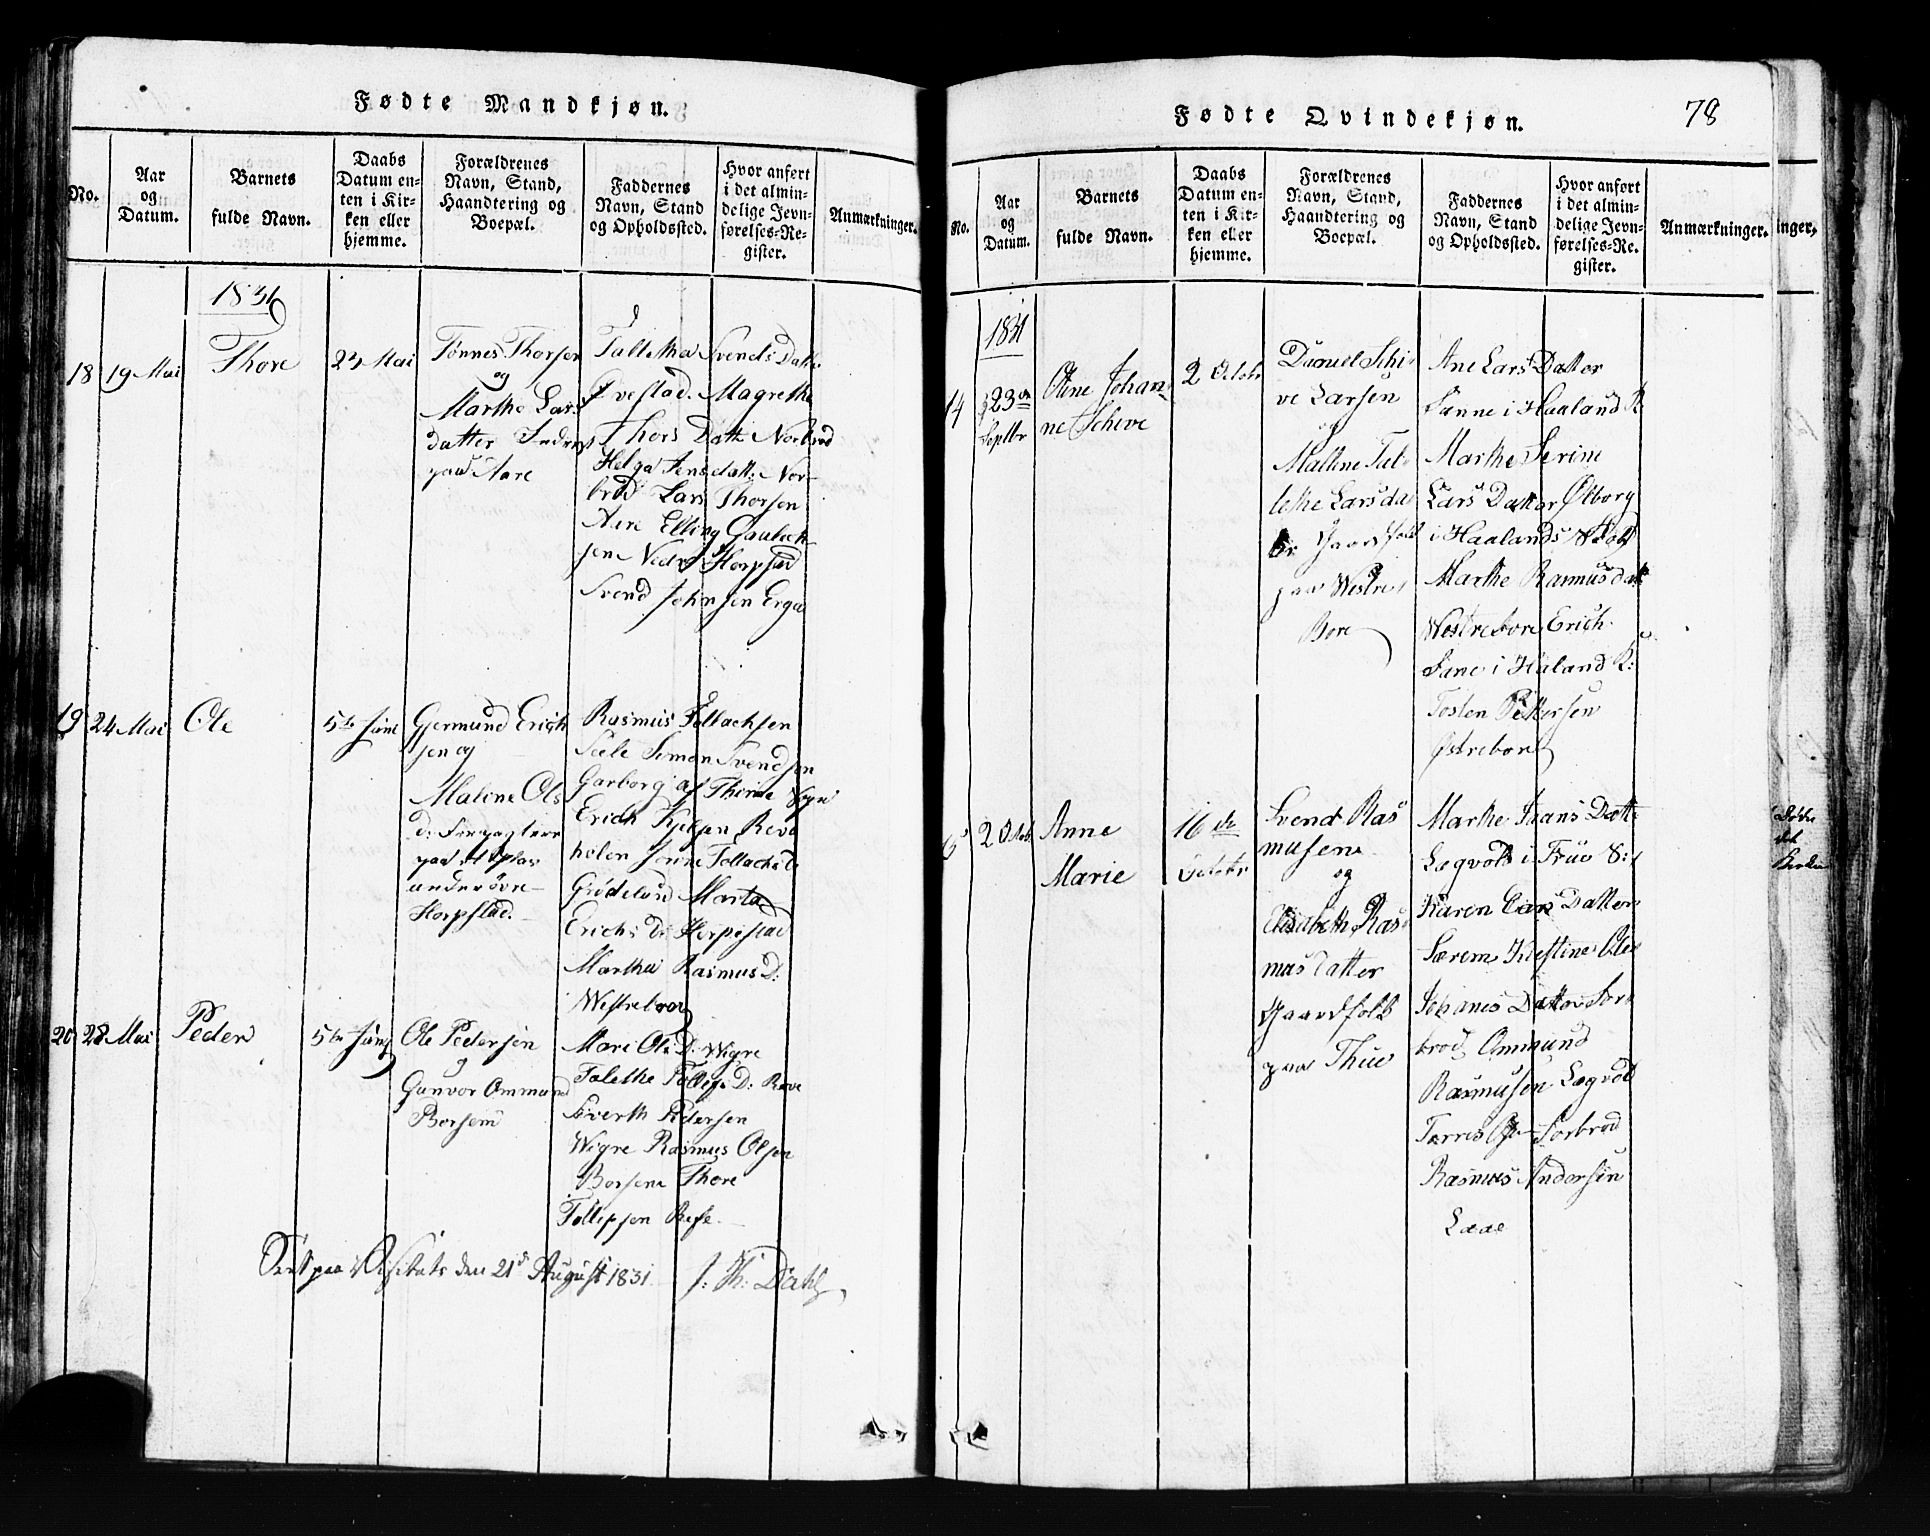 Fødte Mandkjøn.
No.
Aar
og
Datum.
Barnets
fulde Navn.
Daabs
Datum en-
ten i Kir-
ken eller
hjemme.
Forældrenes
Navn, Stand,
Haandtering og
Boepæl.
Faddernes
Navn, Stand
og Opholdssted.
Hvor anført
i det almin-
delige Jevn-
førelses-Re-
gister.
Anmærkninger.
1831
18
19 Mai
Thore
23 Mai
Tønnes Thorsen
og
Marthe Lars
datter
paa Aare
Talletha Svends Datt:
Qvestad. Magrethe
Thors Datt: Norbrød
Helga Jens datt: Nor-
brød Lars Thorsen
Aare Elling
sen Nedre Horpstad
Svend Johnsen Erga
19
24 Mai
Ole
5te Juni
Gjermund Erich
sen og
Maline Ols
d: Forpagtere
paa et plas
under øvre
Horpstad.
Rasmus Tollachsen
Sele Simon Svendsen
Garborg af Thime Sogn
Erich Kjelsen Reve
helen Tollachs D
Grødeland Marta
Erichs D: Horpestad
Martha Rasmus D:
Westrebore
20
28 Mai
Peder
5te Juni
Ole Pedersen
og
Gunvor Ommund
Borsem
Mari Ols D: Wigre
Talethe Tollefs D: Reve
Siverth Pedersen
Wigre Rasmus Olsen
Borsem Thore
Tollefsen Refe.
Seet paa Visitats den 21de August 1831. J: Th: Dahl
Fødte Qvindekjøn.
78
No.
Aar
og
Datum.
Barnets
fulde Navn.
Daabs
Datum en-
ten i Kir-
ken eller
hjemme.
Forældrenes
Navn, Stand,
Haandtering og
Boepæl.
Faddernes
Navn, Stand
og Opholdssted.
Hvor anført
i det almin-
delige Jevn-
førelses-Re-
gister.
Anmærkninger.
inger.
1831
14
23
Septbr
Johan-
ne Schive
2 Octobr
Daniel Schi-
ve Larsen
og
Malene Tal-
lethe Larsdat
ter Gaardfolk
paa Westre
Bore
Ane Lars Datter
Sanne i Haaland K
Marthe Serine
Lars Datter Ølborg
i Haalands
Marthe Rasmusdatt
Westrebore Erich
Sane i Haland K:
Tosten Pettersen
Østrebore
2 Octob
Anne
Marie
16 de
Octobr
Svend Ras
musen
og
Elisabeth Ras
mus datter
Gaardfolk
paa Thue
Marthe Ivans Datt:
Legvold i Frue S:
Karen Lars Datter
Særem Kiestine Ole
Johanes Datter Sor-
brød Ommund
Rasmusen Legvol
Torres Sorbrød
Rasmus Andersen
Laae